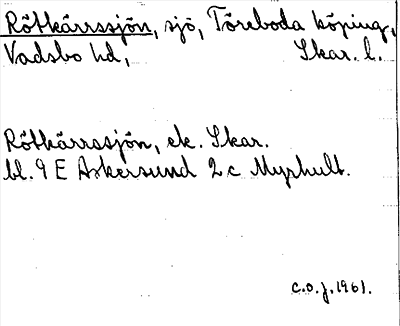 Rötkärrssjön, sjö, Töreboda köping,
Vadsbo hd, Skar. l.
Rötkärrssjön, ek. Skar.
bl. 9 E Askersund 2 c Myrhult.
c.o.j. 1961.